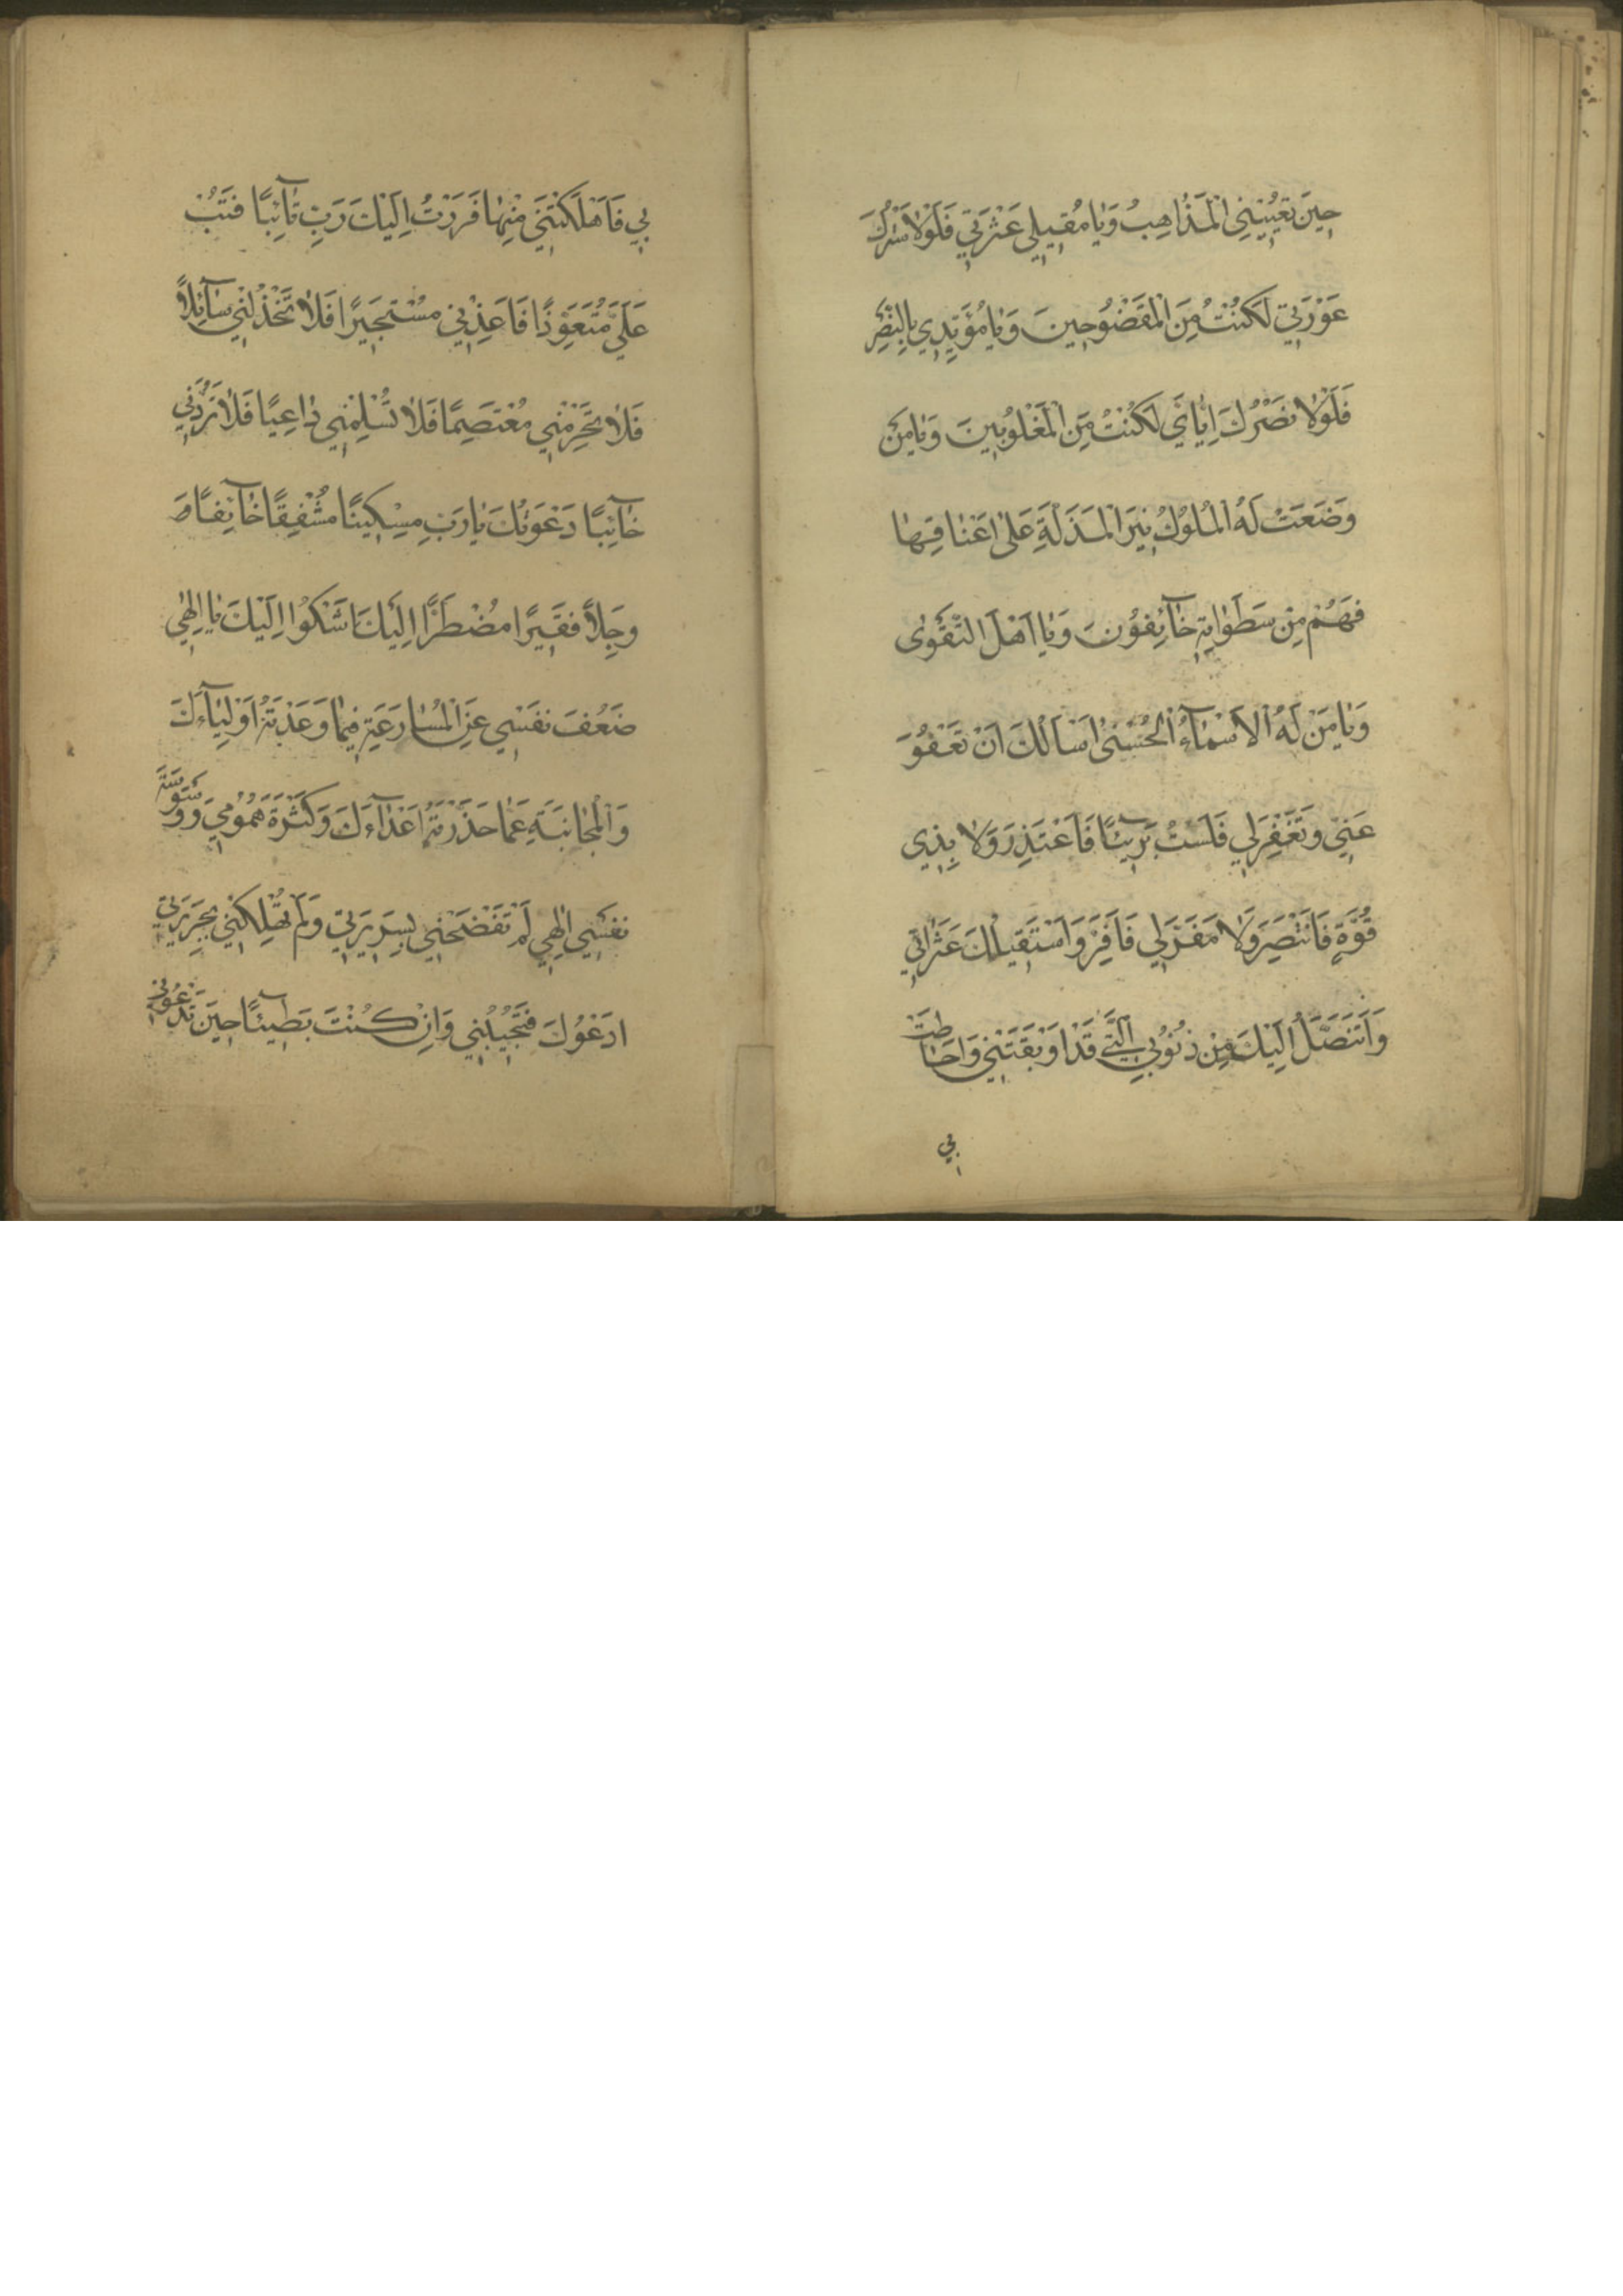 حِينَ تُعْيِينِي الْمَذَاهِبُ وَيَا مُقِيلِي عَثْرَتِي فَلَوْلَا سَتْرُكَ
عَوْرَتِي لَكُنْتُ مِنَ الْمَفْضُوحِينَ وَيَا مُؤَيِّدِي بِالنَّصْرِ
فَلَوْلَا نَصْرُكَ اِيَّايَ لَكُنْتُ مِنَ الْمَغْلُوبِينَ وَيَا مَنْ
وَضَعَتْ لَهُ الْمُلُوكُ نِيرَ الْمَذَلَّةِ عَلَى اَعْنَاقِهَا
فَهُمْ مِنْ سَطَوَاتِهِ خَآئِفُونَ وَيَا اَهْلَ التَّقْوَى
وَيَا مَنْ لَهُ الْاَسْمَآءُ الْحُسْنَى اَسْاَلُكَ اَنْ تَعْفُوَ
عَنِّي وَتَغْفِرَ لِي فَلَسْتُ بَرِيئًا فَاَعْتَذِرَ وَلَا بِذِي
قُوَّةٍ فَاَنْتَصِرَ وَلَا مَفَرَّ لِي فَاَفِرَّ وَاَسْتَقِيلُكَ عَثَرَاتِي
وَاَتَنَصَّلُ اِلَيْكَ مِنْ ذُنُوبِيَ الَّتِي قَدْ اَوْبَقَتْنِي وَاَحَاطَتْ
بِي
بِي فَاَهْلَكَتْنِي مِنْهَا فَرَرْتُ اِلَيْكَ رَبِّ تَآئِبًا فَتُبْ
عَلَيَّ مُتَعَوِّذًا فَاَعِذْنِي مُسْتَجِيرًا فَلَا تَخْذُلْنِي سَآئِلًا
فَلَا تَحْرِمْنِي مُعْتَصِمًا فَلَا تُسْلِمْنِي دَاعِيًا فَلَا تَرُدَّنِي
خَآئِبًا دَعَوْتُكَ يَا رَبِّ مِسْكِينًا مُشْفِقًا خَآئِفًا
وَجِلًا فَقِيرًا مُضْطَرًّا اِلَيْكَ اَشْكُوا اِلَيْكَ يَا اِلٰهِي
ضَعْفَ نَفْسِي عَنِ الْمُسَارَعَةِ فِيمَا وَعَدْتَهُ اَوْلِيَآءَكَ
وَالْمُجَانَبَةِ عَمَّا حَذَّرْتَهُ اَعْدَآءَكَ وَكَثْرَةَ هُمُومِي وَوَسْوَسَةَ
نَفْسِي اِلٰهِي لَمْ تَفْضَحْنِي بِسَرِيرَتِي وَلَمْ تُهْلِكْنِي بِجَرِيرَتِي
اَدْعُوكَ فَتُجِيبُنِي وَاِنْ كُنْتُ بَطِيئًا حِينَ تَدْعُونِي